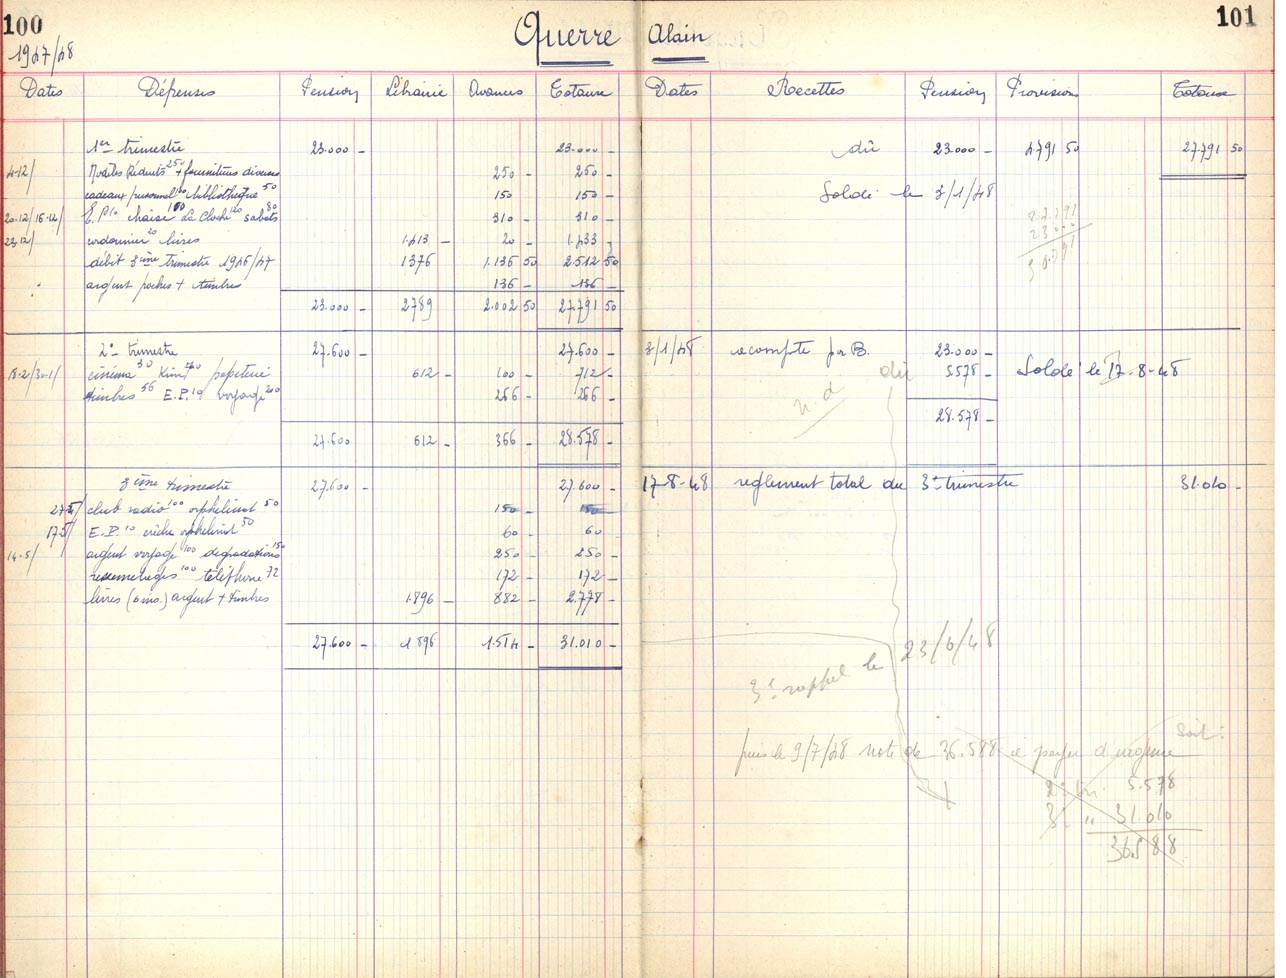 100
1947/48
Querre
Dates Dépenses Pension Librairie Avances Totaux
1er trimestre 23.000 - 23.000 -
4-12/ Modèles Réduits 250 + fournitures diverses 250 - 250 -
cadeaux personnel 100 bibliothèque 50 150 - 150 -
20-12/16-12/ E.P 10 chaise 100 La Cloche 20 sabots 80 310 - 310 -
23-12/ cordonnier 20 livres 1.413 - 20 - 1.433 -
débit 3ème trimestre 1946/47 1376 1.136 50 2.512 50
argent poches + timbres 136 - 136 -
23.000 - 2789 2.002 50 27.791 50
2e trimestre 27.600 - 27.600 -
cinéma 30 papeterie 612 - 100 - 712 -
timbres 56 E.P. 10 voyage 200 266 - 266 -
27.600 612 - 366 - 28.578 -
3ème trimestre 27.600 - 27.600 -
club radio 100 orphelinat 50 150 - 150 -
E.P. 10 crèche orphelinat 50 60 - 60 -
14-5/ argent voyage 100 dégradations 150 250 - 250 -
ressemelages 100 téléphone 72 172 - 172 -
livres argent + timbres 1.896 - 882 - 2.778 -
27.600 - 1896 1.514 - 31.010 -
101
Alain
Dates Recettes Pension Provision Totaux
dû 23.000 - 4791 50 27.791 50
Soldé le 3/1/48
27.791
23.000
3/1/48 acompte par B. 23.000 -
dû 5578 - Soldé le 17-8-48
n.d
28.578 -
17-8-48 reglement total du 3e trimestre 31.010 -
3e rappel le 23/6/48
puis le 9/7/48 note de 36.588 à payer d'urgence soit:
2e tri. 5.578
3e " 31.010
36.588